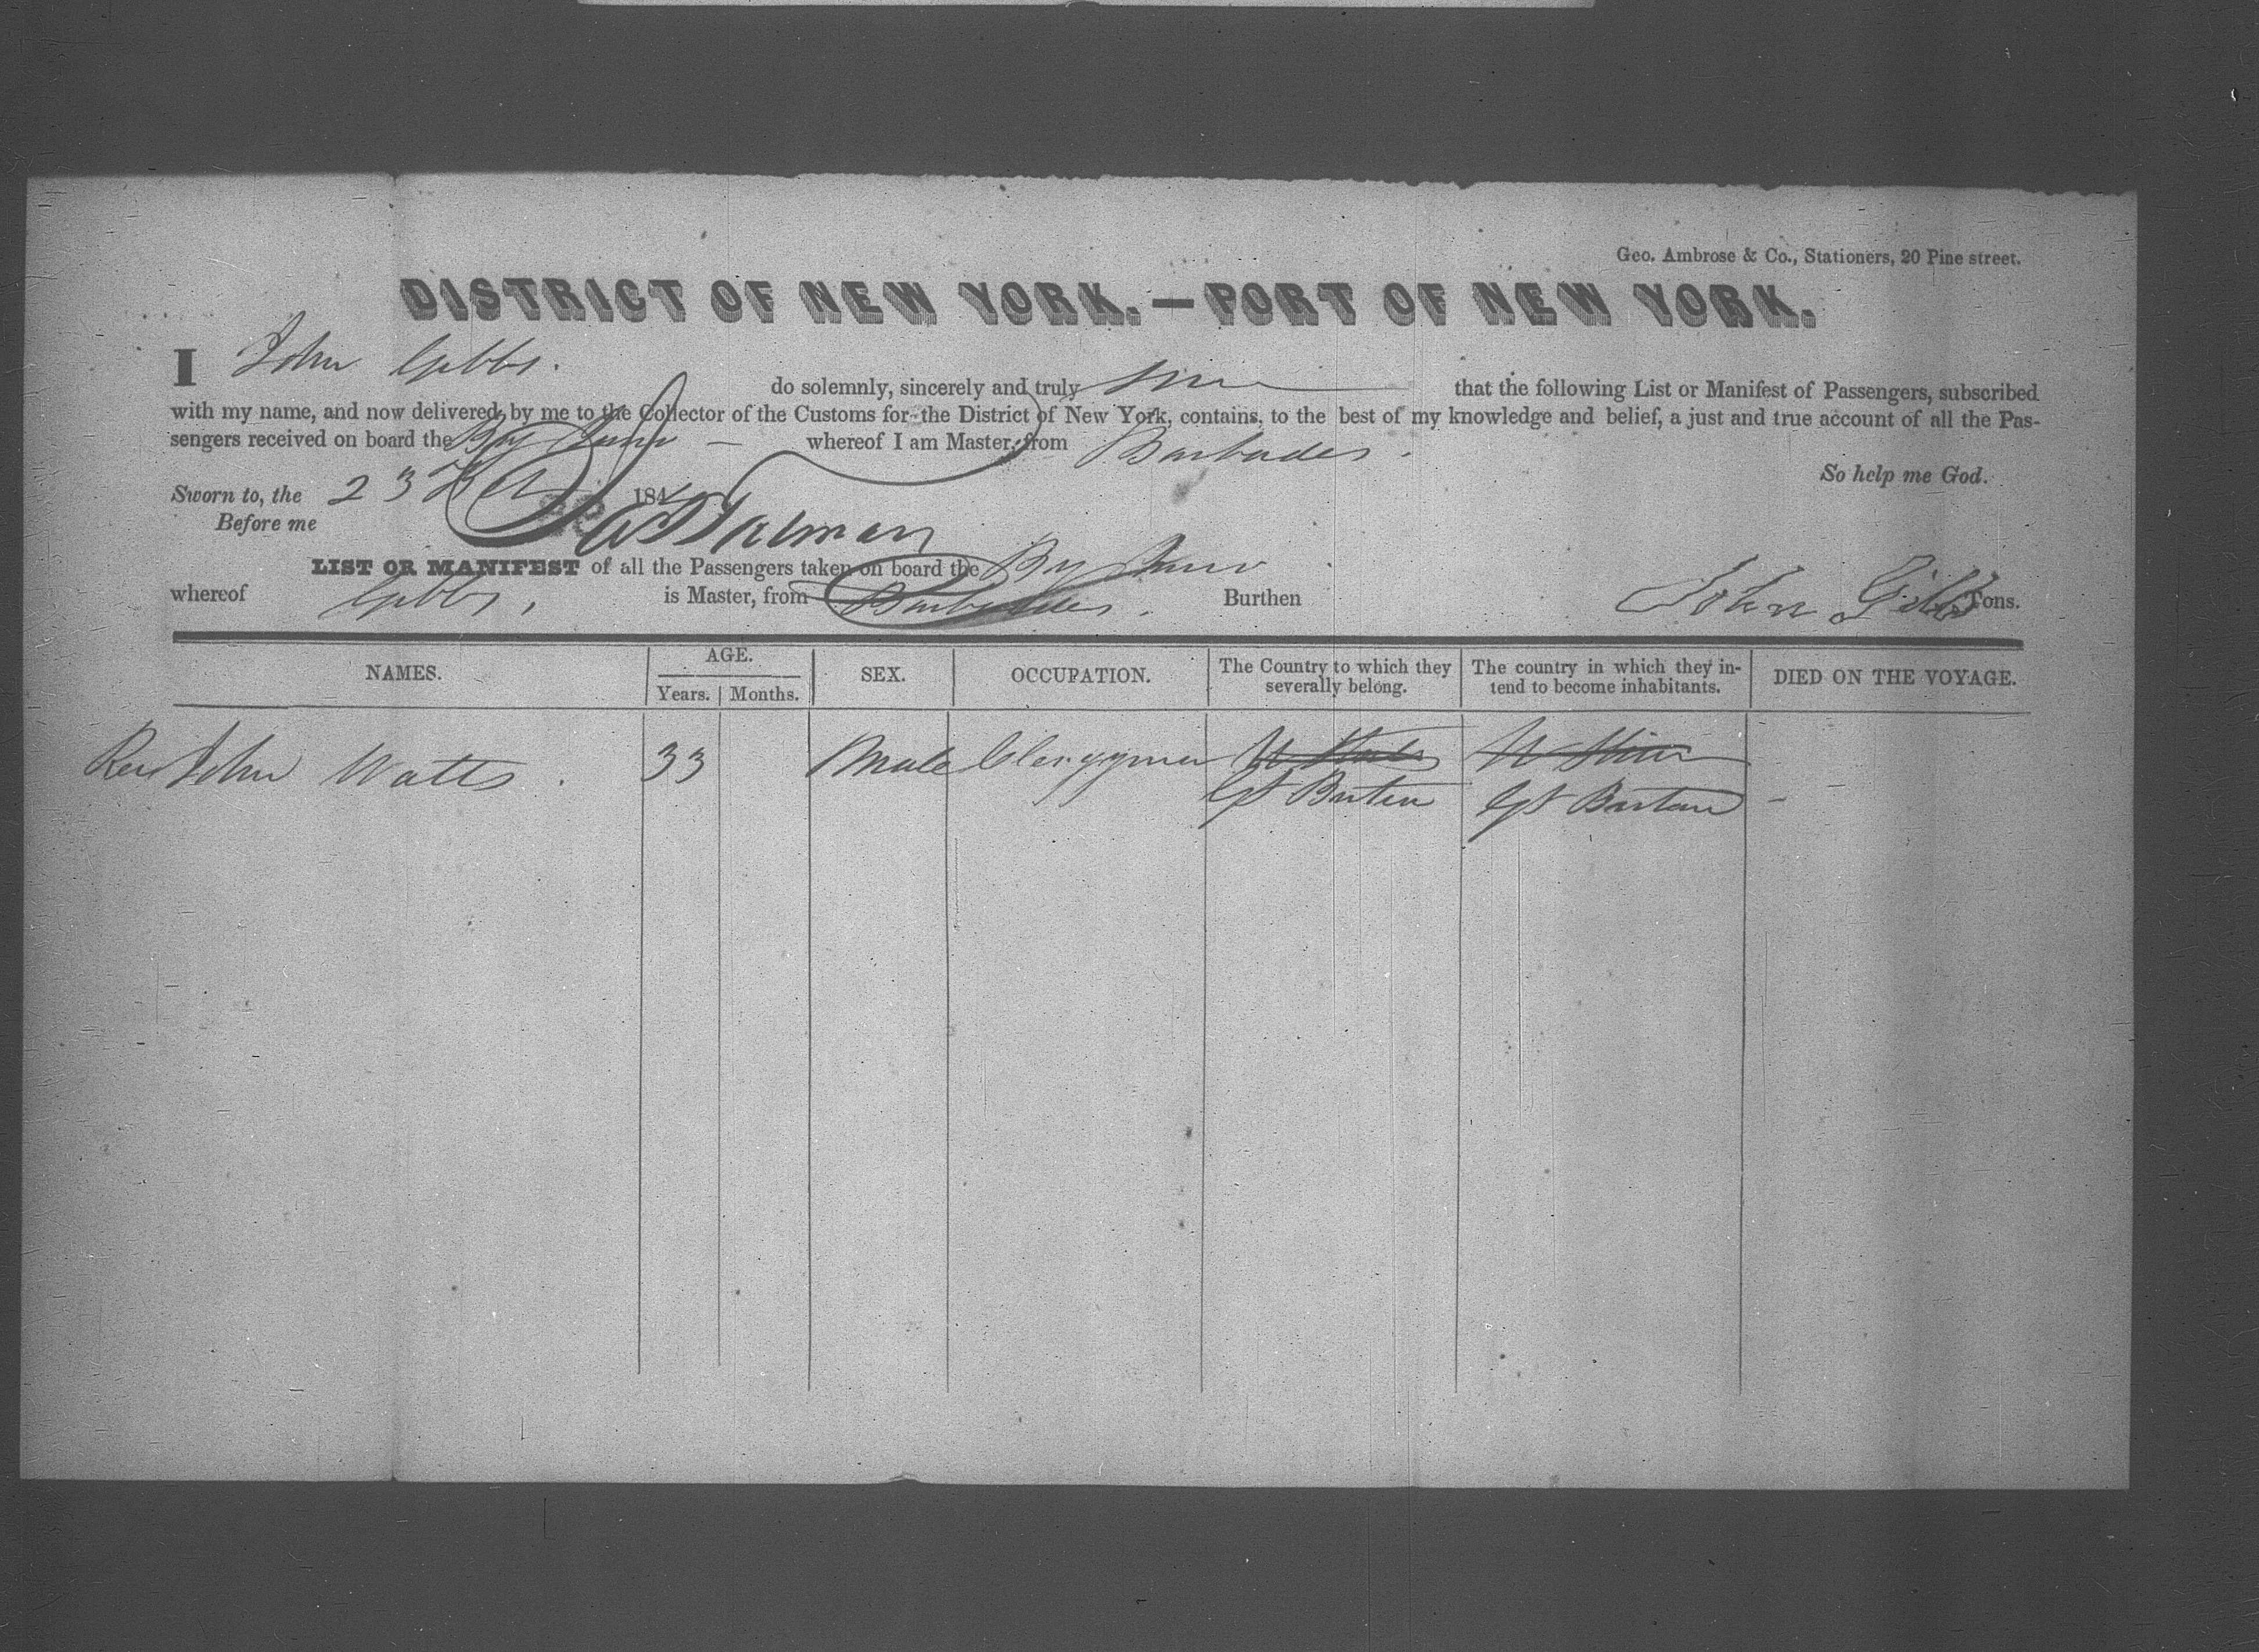 Geo. Ambrose & Co., Stationers, 20 Pine street.
DISTRICT OF NEW YORK.—PORT OF NEW YORK.
I John Gibbs. do solemnly, sincerely and truly that the following List or Manifest of Passengers, subscribed
with my name, and now delivered by me to the Collector of the Customs for the District of New York, contains, to the best of my knowledge and belief, a just and true account of all the Pas-
sengers received on board the whereof I am Master, from Barbades.
So help me God.
Sworn to, the 23 184
Before me
LIST OR MANIFEST of all the Passengers taken on board the
whereof Gibbs, is Master, from Barbades. Burthen Tons.
John Gibbs
NAMES. AGE. Years. Months. SEX. OCCUPATION. The Country to which they severally belong. The country in which they in-tend to become inhabitants. DIED ON THE VOYAGE.
Rev John Watts. 33 Male Clergyman U States
Gt Bartain